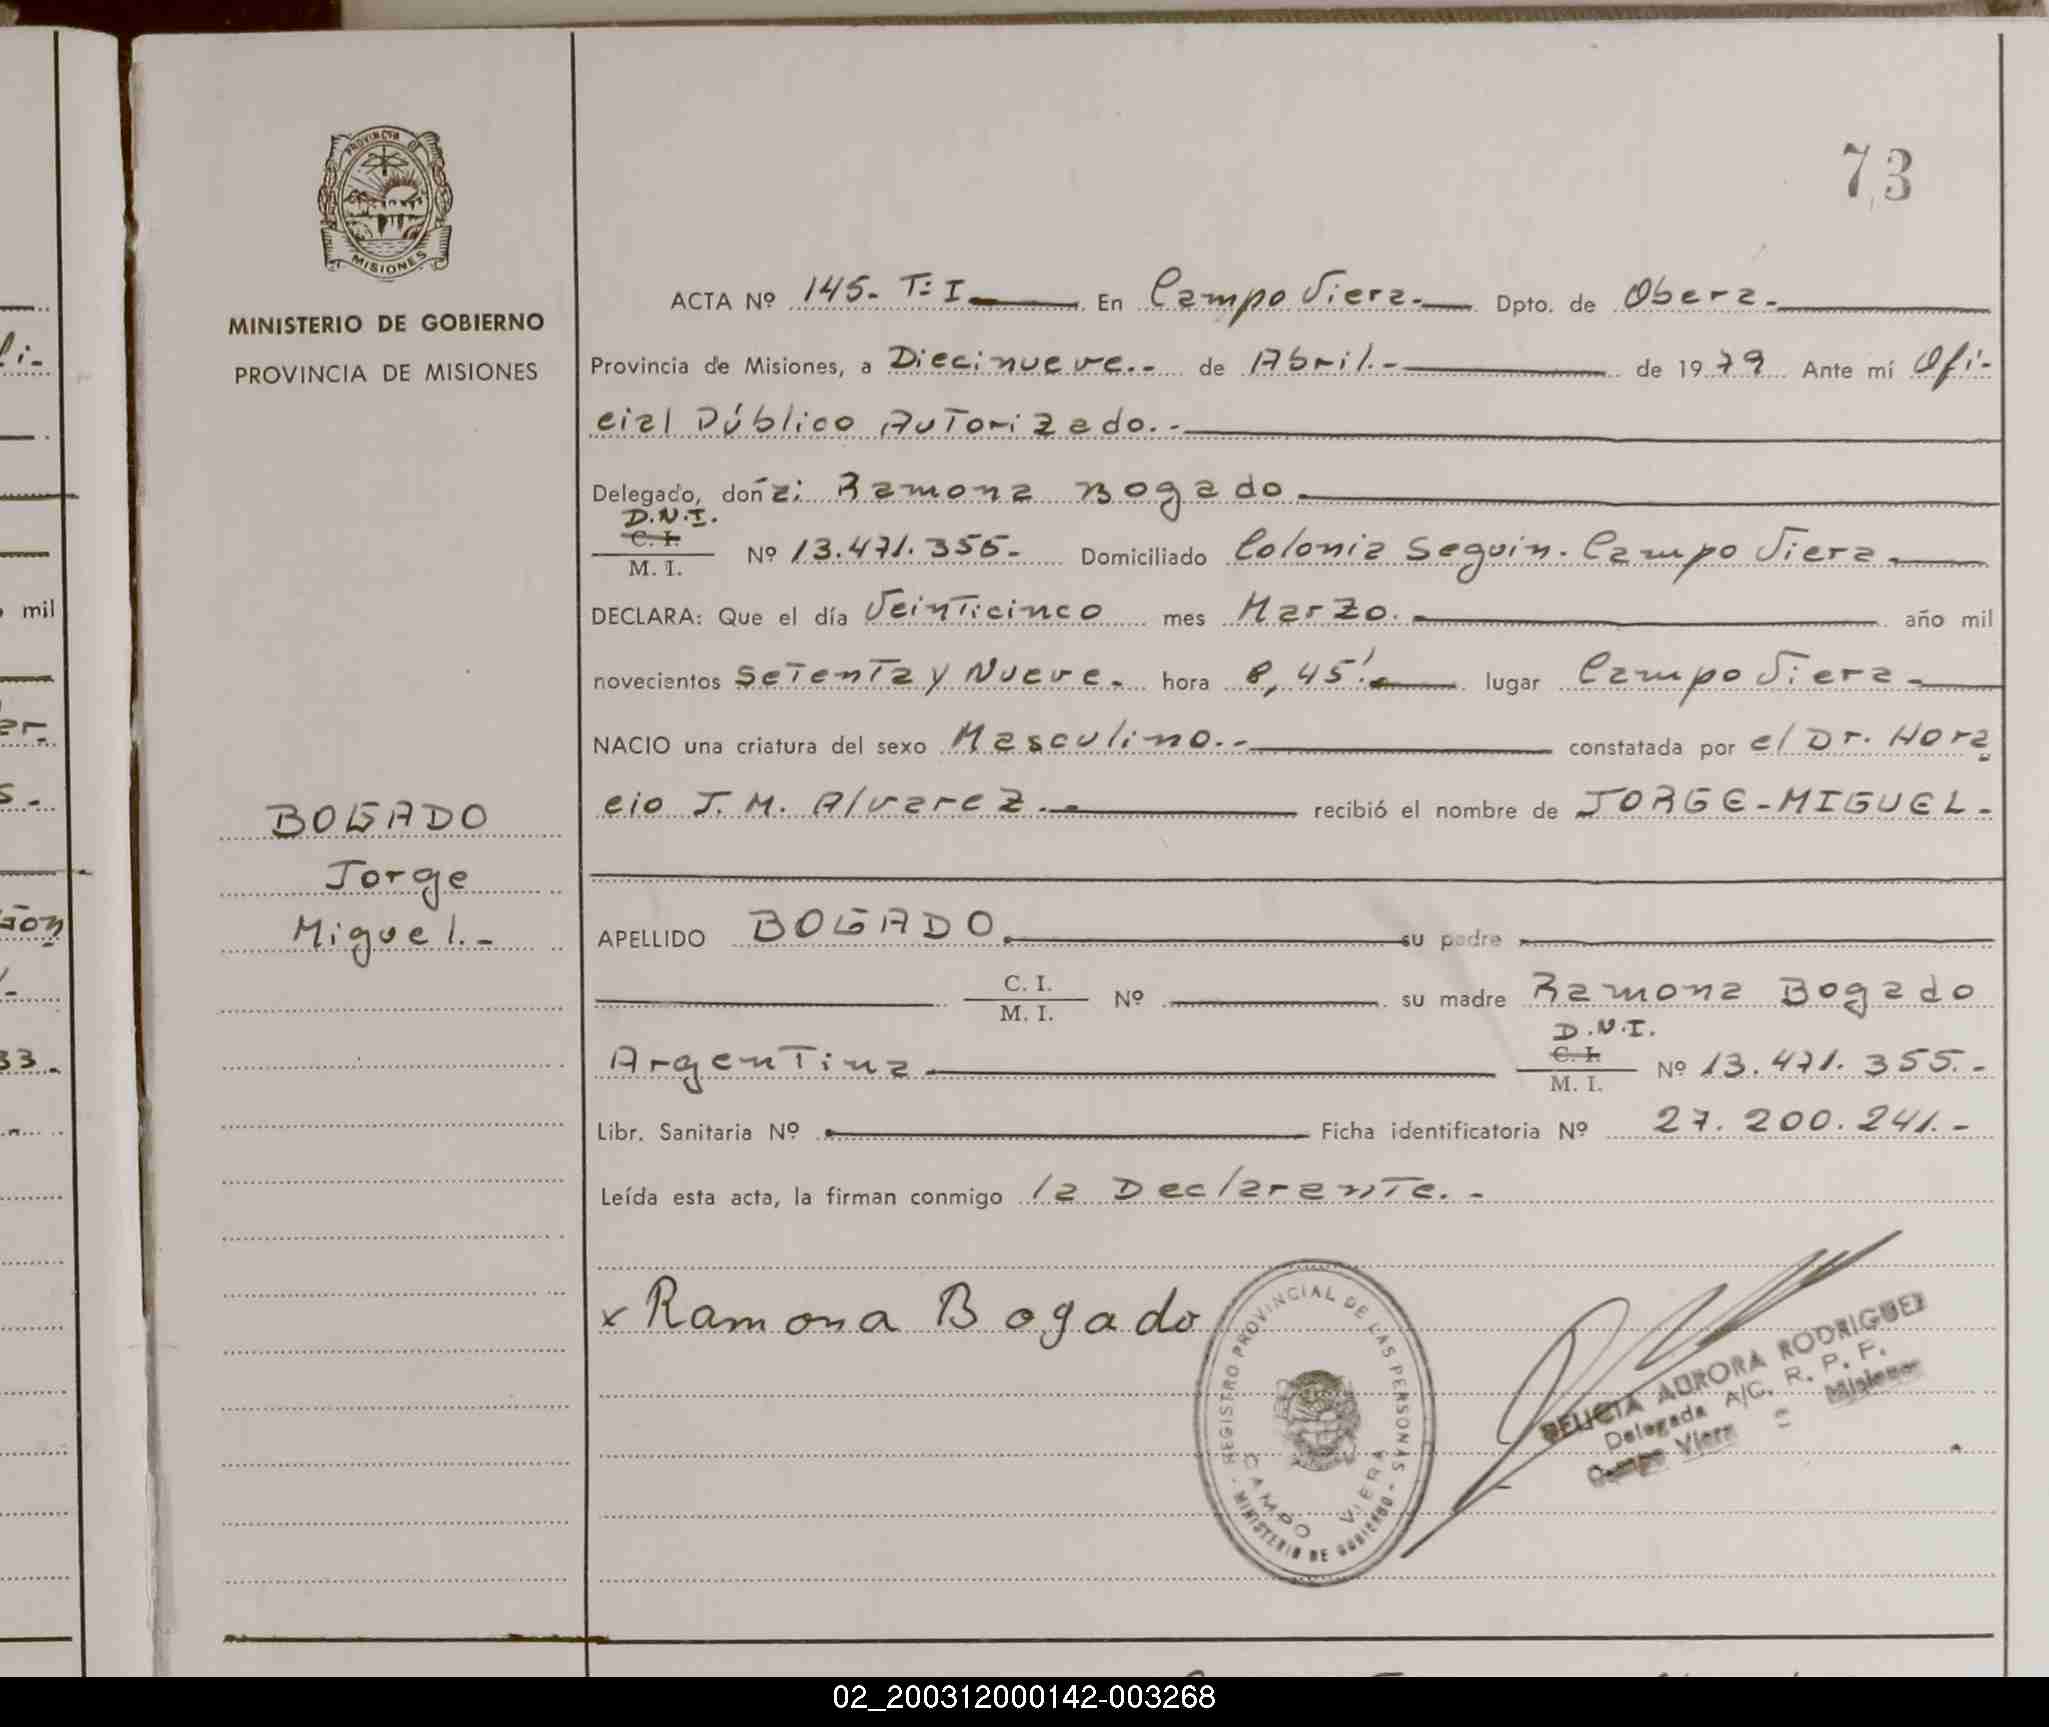 73
PROVINCIA DE
MISIONES
MINISTERIO DE GOBIERNO
PROVINCIA DE MISIONES
BOGADO
Jorge
Miguel.-
ACTA Nº 145- T: I En Campo Viera.- Dpto. de Obera-
Provincia de Misiones, a Diecinueve.- de Abril.- de 1979 Ante mí Ofi-
cial Público Autorizado.-
Delegado, doña: Ramona Bogado
D.N.I.
C. I.
M. I. Nº 13.471.355- Domiciliado Colonia Seguin. Campo Viera
DECLARA: Que el día Veinticinco mes Marzo. año mil
novecientos Setenta y Nueve. hora 8,45'. lugar Campo Viera
NACIO una criatura del sexo Masculino.- constatada por el Dr. Hora
cio J. M. Alvarez.- recibió el nombre de JORGE-MIGUEL-
APELLIDO BOGADO su padre
C. I.
M. I. Nº su madre Ramona Bogado
Argentina D.N.I.
C. I.
M. I. Nº 13.471.355.-
Libr. Sanitaria Nº Ficha identificatoria Nº 27.200.241.-
Leída esta acta, la firman conmigo la Declarante.-
x Ramona Bogado
REGISTRO PROVINCIAL DE LAS PERSONAS
CAMPO VIERA
- MINISTERIO DE GOBIERNO -
FELICIA AURORA RODRIGUEZ
Delegada A/C. R. P. P.
Campo Viera = Misiones
li-
mil
er-
s-
33.
02_200312000142-003268